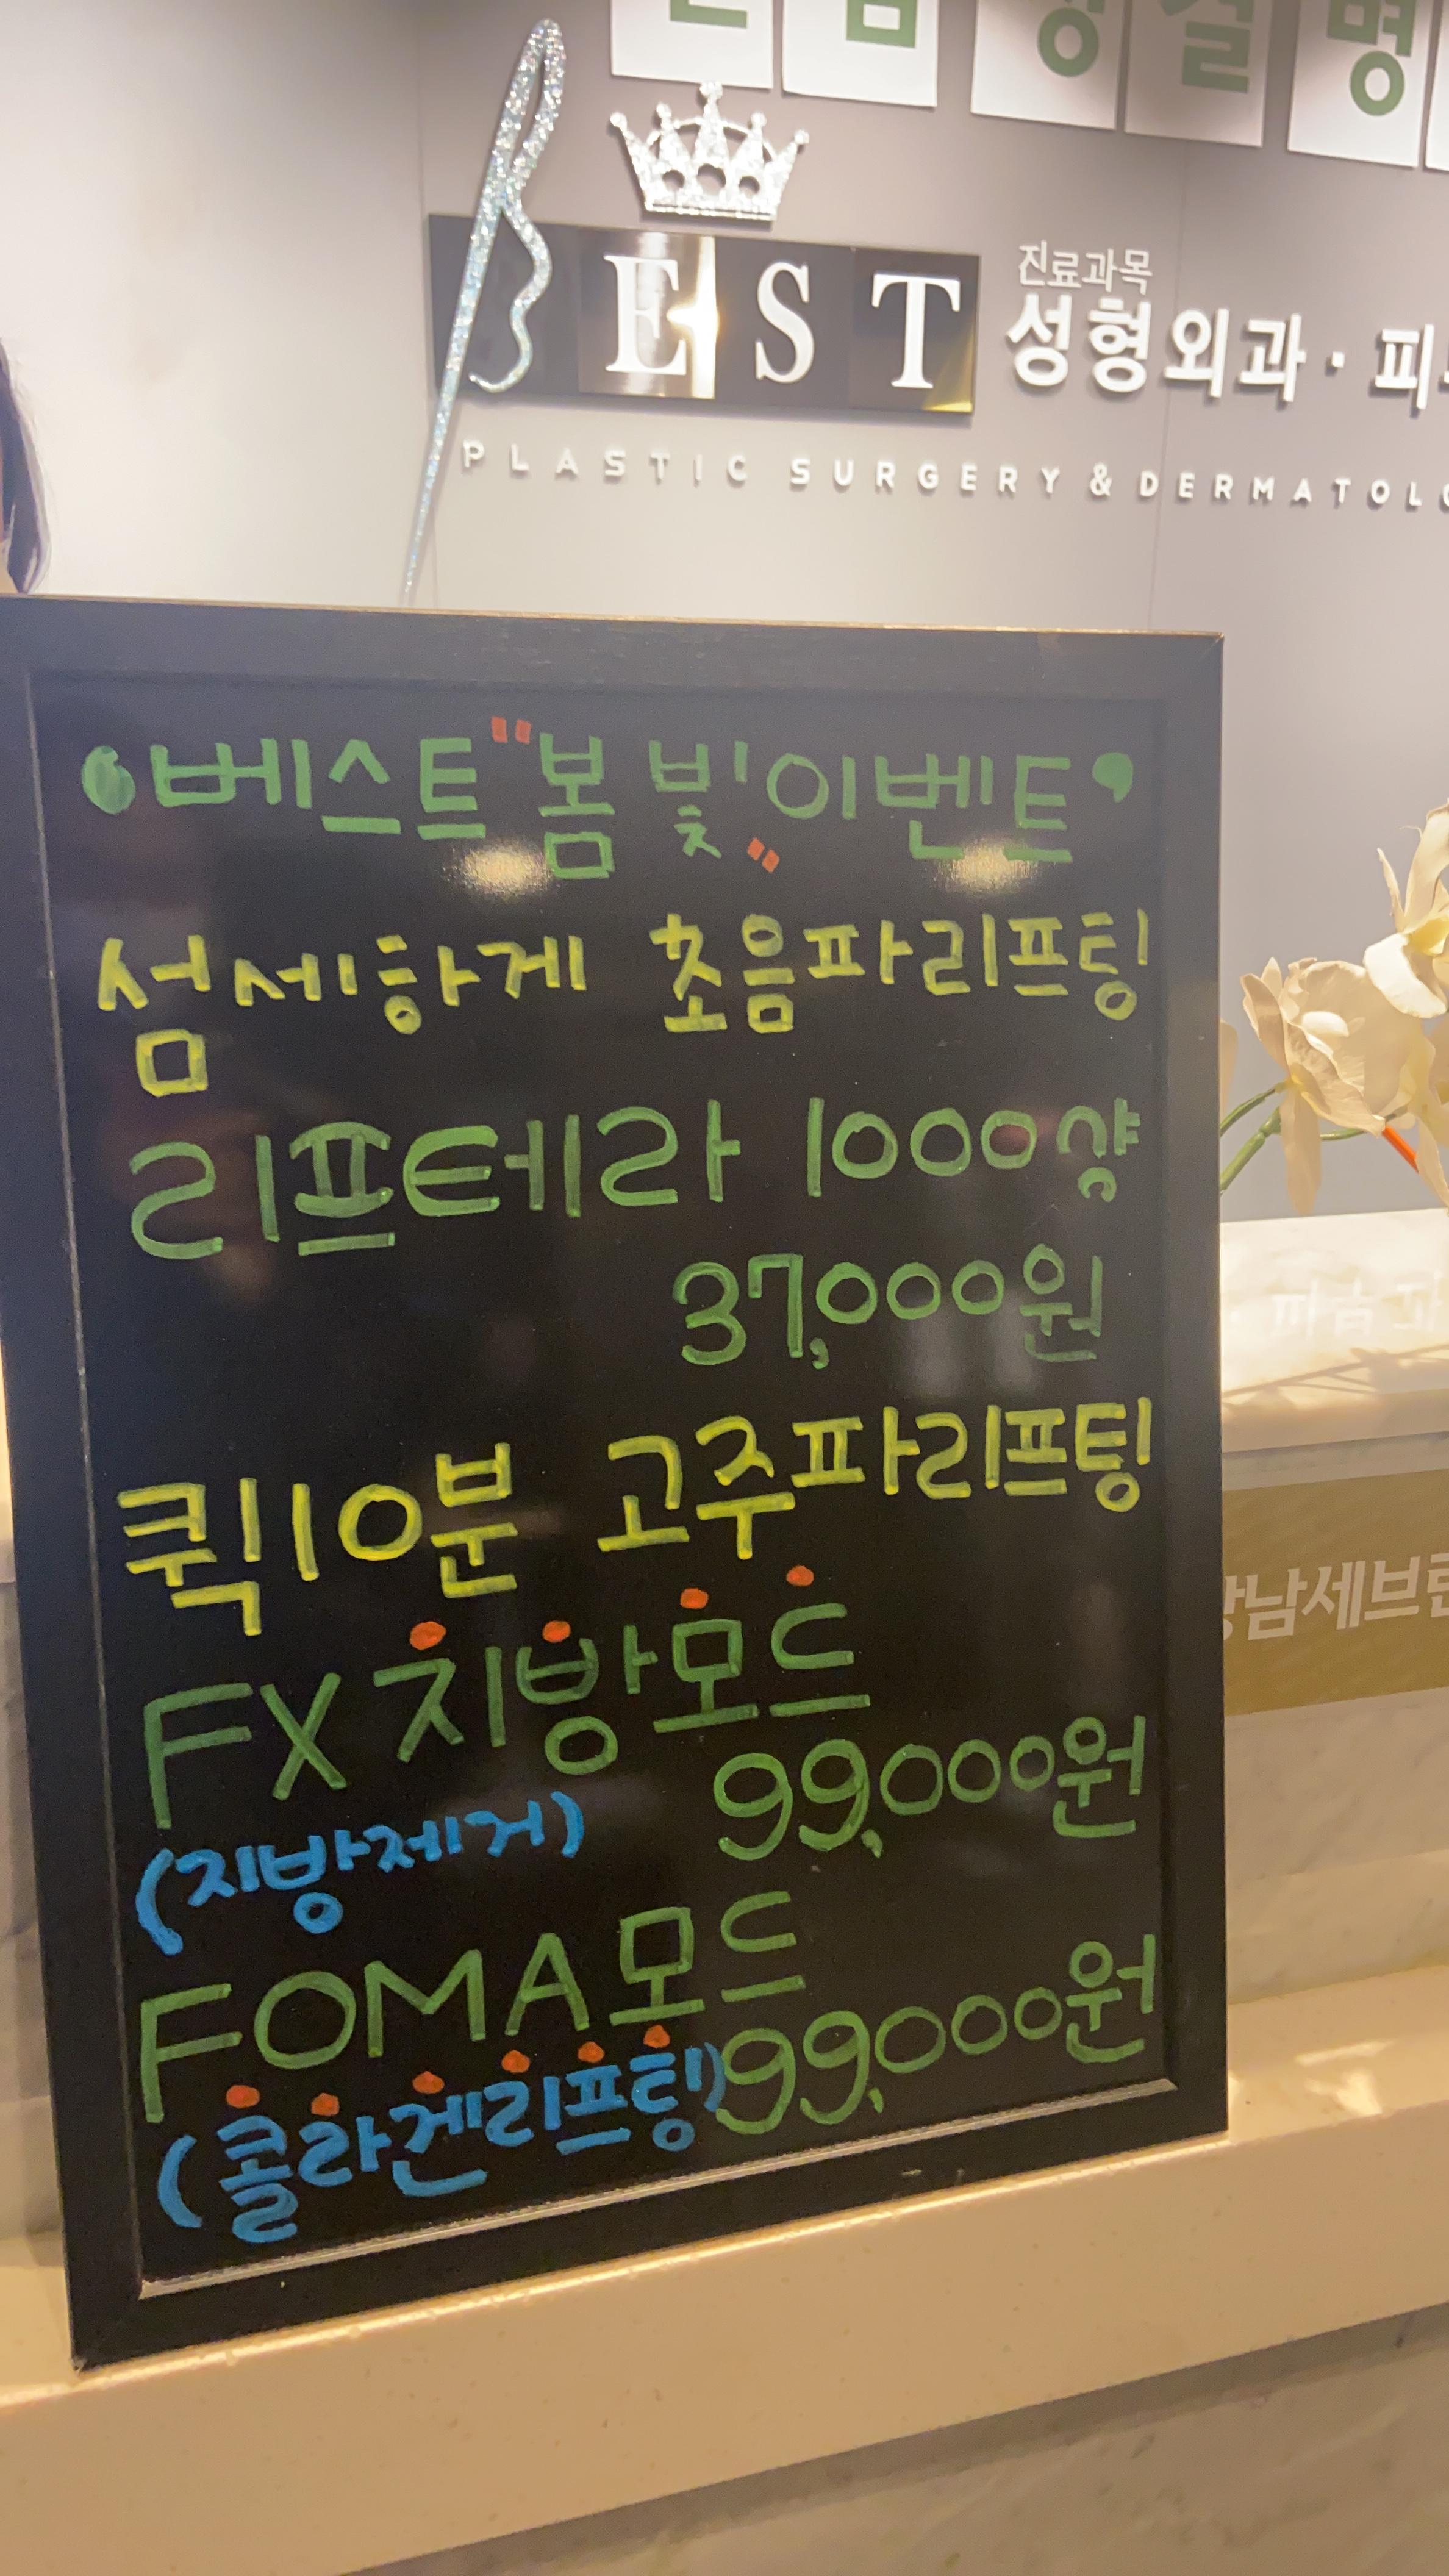 BEST
진료과목
성형외과 · 피
PLASTIC SURGERY & DERMATOLO
베스트 "봄빛" 이벤트
섬세하게 초음파리프팅
리프테라 1000샷
37,000원
퀵10분 고주파리프팅
FX 지방모드
99,000원
(지방제거)
FOMA모드
(콜라겐리프팅) 99,000원
강남세브란